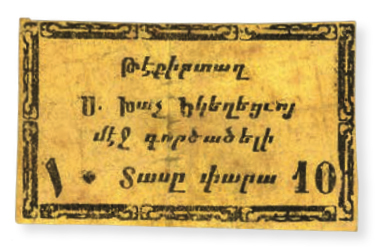 Թէքիրտաղ
Ս. Խաչ Եկեղեցւոյ
մէջ գործածելի
١٠ Տասը փարա 10